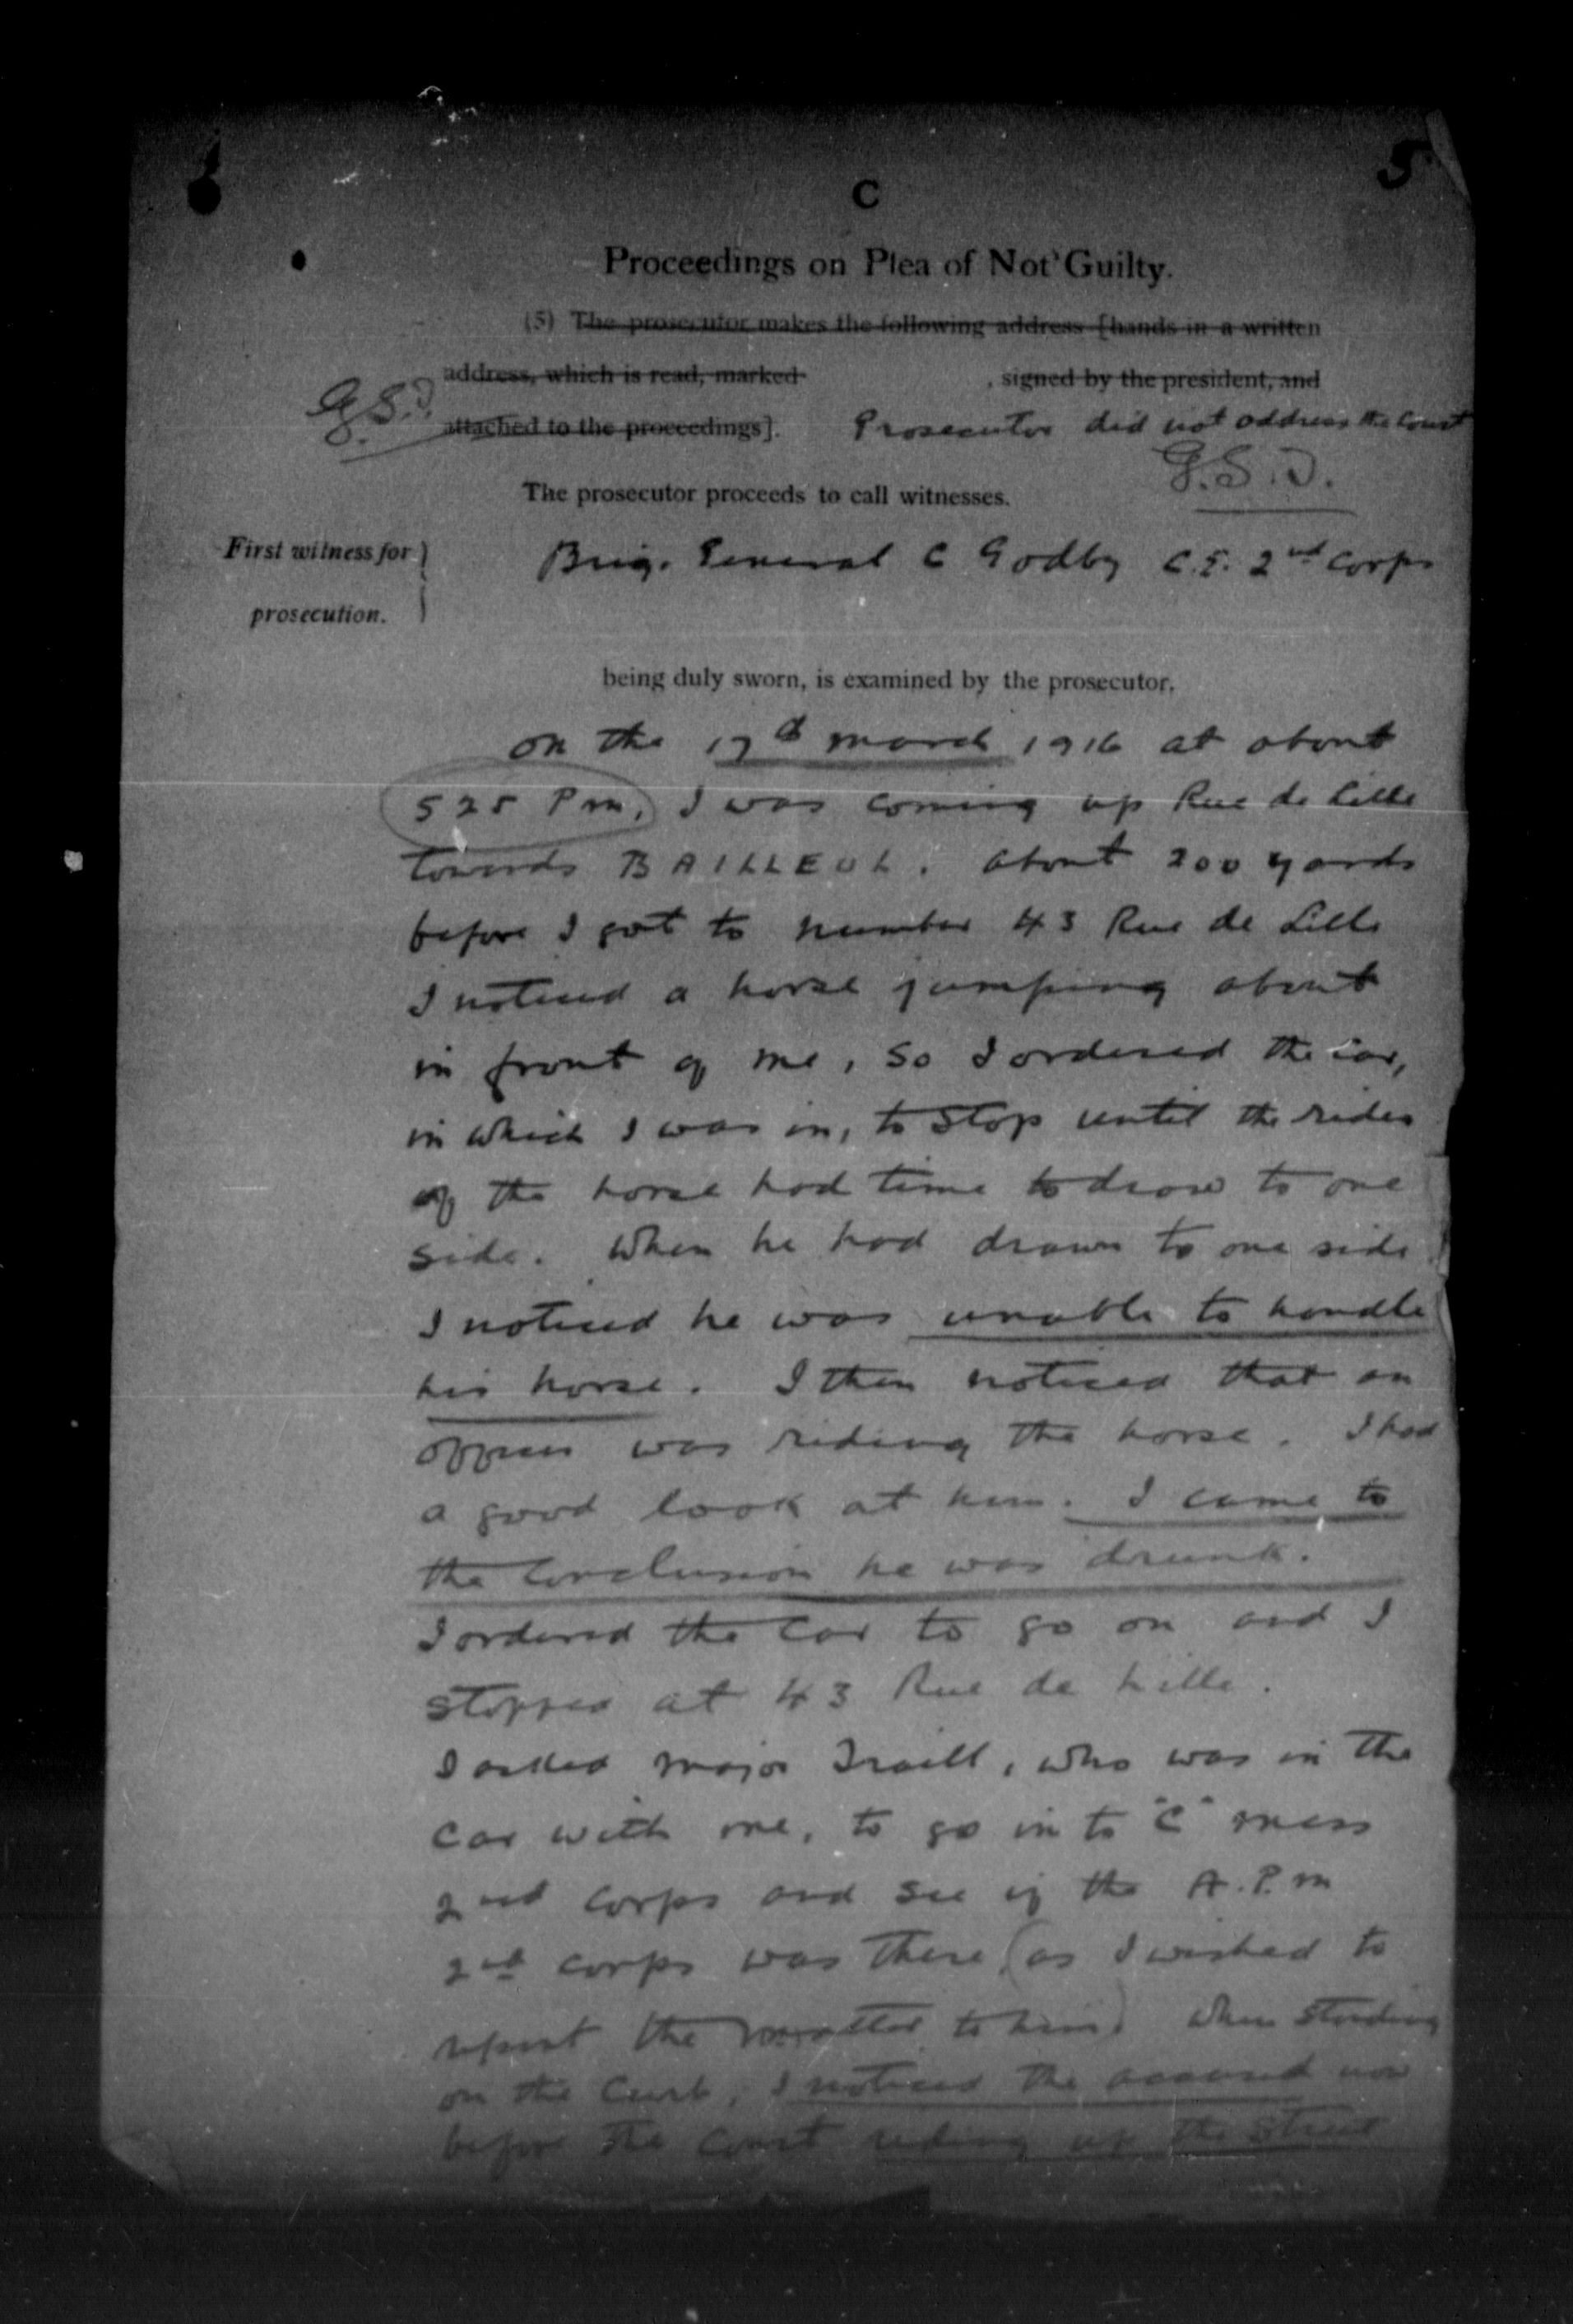 5
C
Proceedings on Plea of Not Guilty.
(5) The prosecutor makes the following address [hands in a written
address, which is read, marked , signed by the president, and
G.S.D. attached to the proceedings]. Prosecutor did not address the Court
G.S.D.
The prosecutor proceeds to call witnesses.
First witness for } Brig. General C Godby C.E. 2nd Corps
prosecution.
being duly sworn, is examined by the prosecutor.
On the 17th March 1916 at about
525 Pm, I was coming up Rue de Lille
towards BAILLEUL. About 200 yards
before I got to number 43 Rue de Lille
I noticed a horse jumping about
in front of me, so I ordered the car,
in which I was in, to stop until the rider
of the horse had time to draw to one
side. When he had drawn to one side
I noticed he was unable to handle
his horse. I then noticed that an
officer was riding the horse. I had
a good look at him. I came to
the conclusion he was drunk.
I ordered the car to go on and I
stopped at 43 Rue de Lille.
I asked Major Traill, who was in the
car with me, to go in to "C" mess
2nd Corps and see if the A.P.M
2nd Corps was there (as I wished to
report the matter to him) When standing
on the Curb, I noticed the accused now
before the Court riding up the street